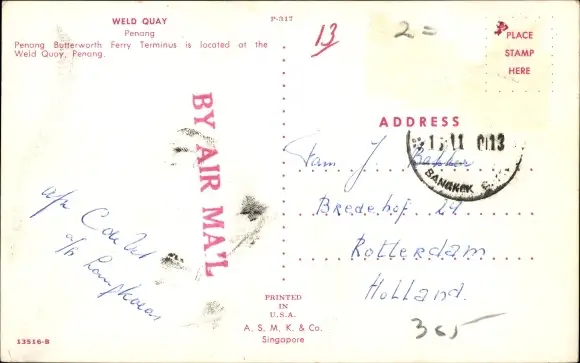 WELD QUAY
Penang
Penang Butterworth Ferry Terminus is located at the
Weld Quay, Penang.
P-317
13
2=
PLACE
STAMP
HERE
BY AIR MA'L
ADDRESS
11
BANGKOK
Fam J Bakker
Bredehof 24
Rotterdam
Holland.
365
a/b
PRINTED
IN
U.S.A.
A. S. M. K. & Co.
Singapore
13516-B